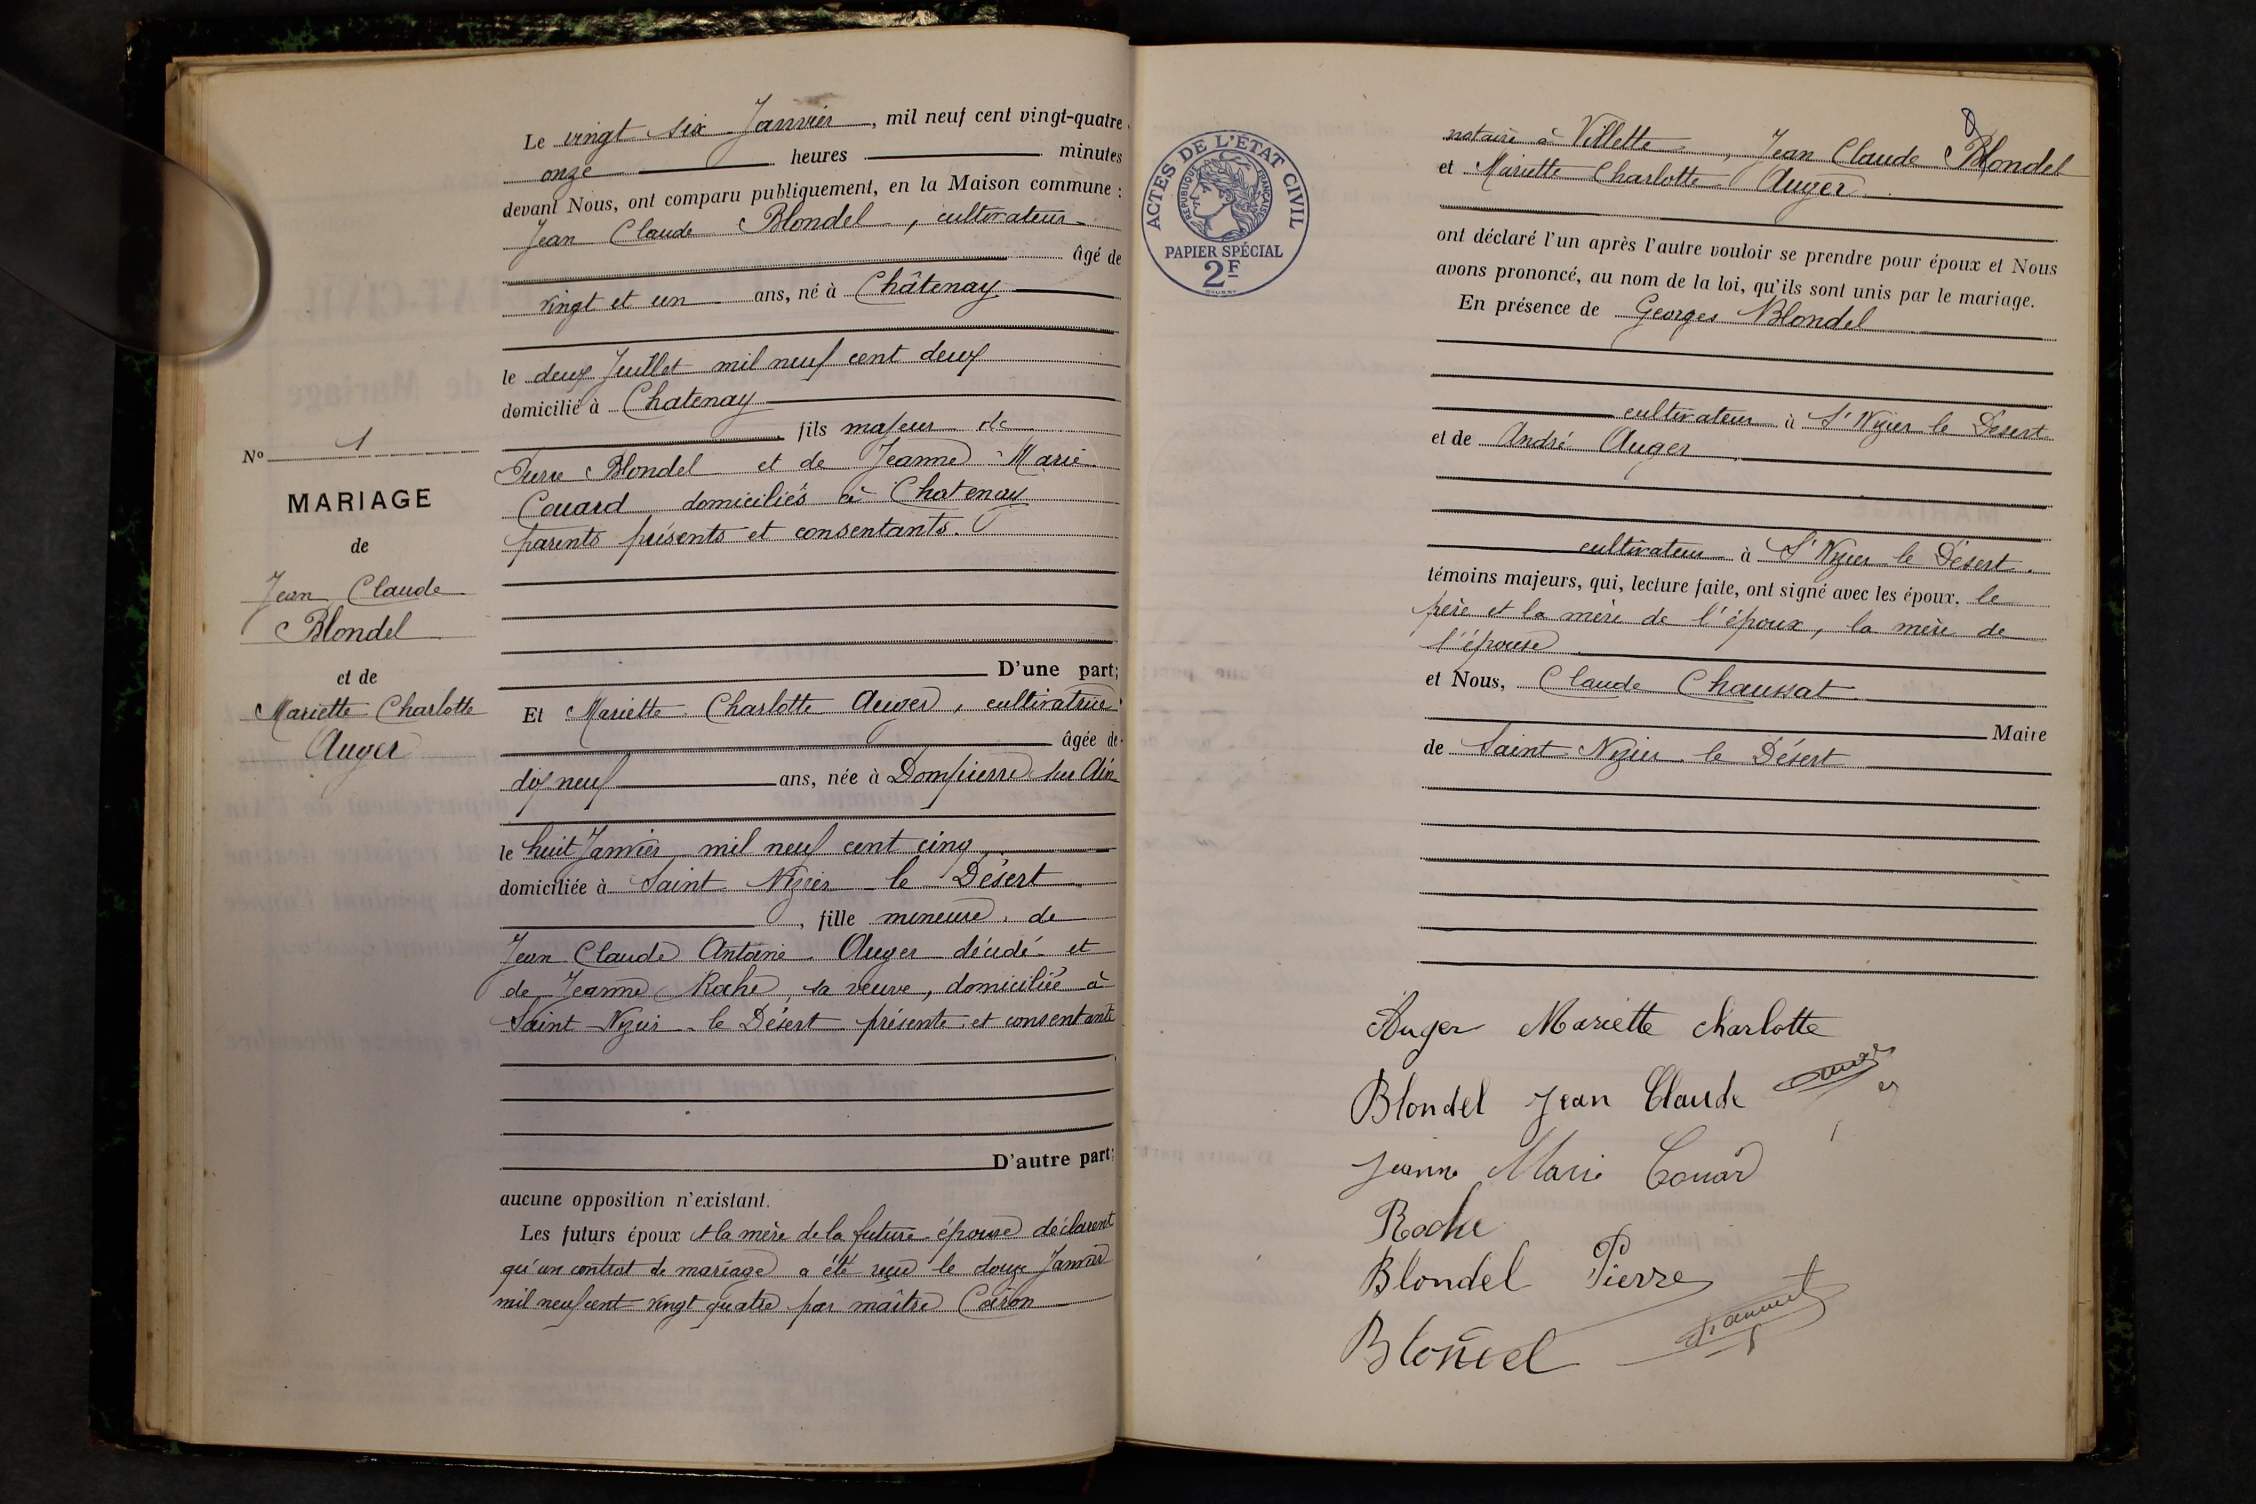 Le vingt six Janvier, mil neuf cent vingt-quatre
onze heures minutes
devant Nous, ont comparu publiquement, en la Maison commune :
Jean Claude Blondel, cultivateur
âgé de
vingt et un ans, né à Châtenay
le deux Juillet mil neuf cent deux
domicilié à Chatenay
fils majeur de
Pierre Blondel et de Jeanne Marie
Couard domiciliés à Chatenay
parents présents et consentants.
D'une part;
Et Mariette Charlotte Auger, cultivatrice
âgée de
dix neuf ans, née à Dompierre sur Ain
le huit Janvier mil neuf cent cinq
domiciliée à Saint Nizier le Désert
, fille mineure de
Jean Claude Antoine Auger décédé et
de Jeanne Roche, sa veuve, domiciliée à
Saint Nizier le Désert présente et consentante
D'autre part;
aucune opposition n'existant.
Les futurs époux et la mère de la future épouse déclarent
qu'un contrat de mariage a été reçu le douze Janvier
mil neuf cent vingt quatre par maître
No 1
MARIAGE
de
Jean Claude
Blondel
et de
Mariette Charlotte
Auger
ACTES DE L'ÉTAT CIVIL
RÉPUBLIQUE FRANÇAISE
PAPIER SPÉCIAL
2F
notaire à Villette, Jean Claude Blondel
et Mariette Charlotte Auger
ont déclaré l'un après l'autre vouloir se prendre pour époux et Nous
avons prononcé, au nom de la loi, qu'ils sont unis par le mariage.
En présence de Georges Blondel
cultivateur à St Nizier le Désert
et de André Auger
cultivateur à St Nizier le Désert.
témoins majeurs, qui, lecture faite, ont signé avec les époux. le
père et la mère de l'époux, la mère de
l'épouse
et Nous, Claude Chaussat
Maire
de Saint Nizier le Désert
Auger Mariette charlotte
Blondel Jean Claude
Jeanne Marie Couard
Roche
Blondel Pierre
Blondel